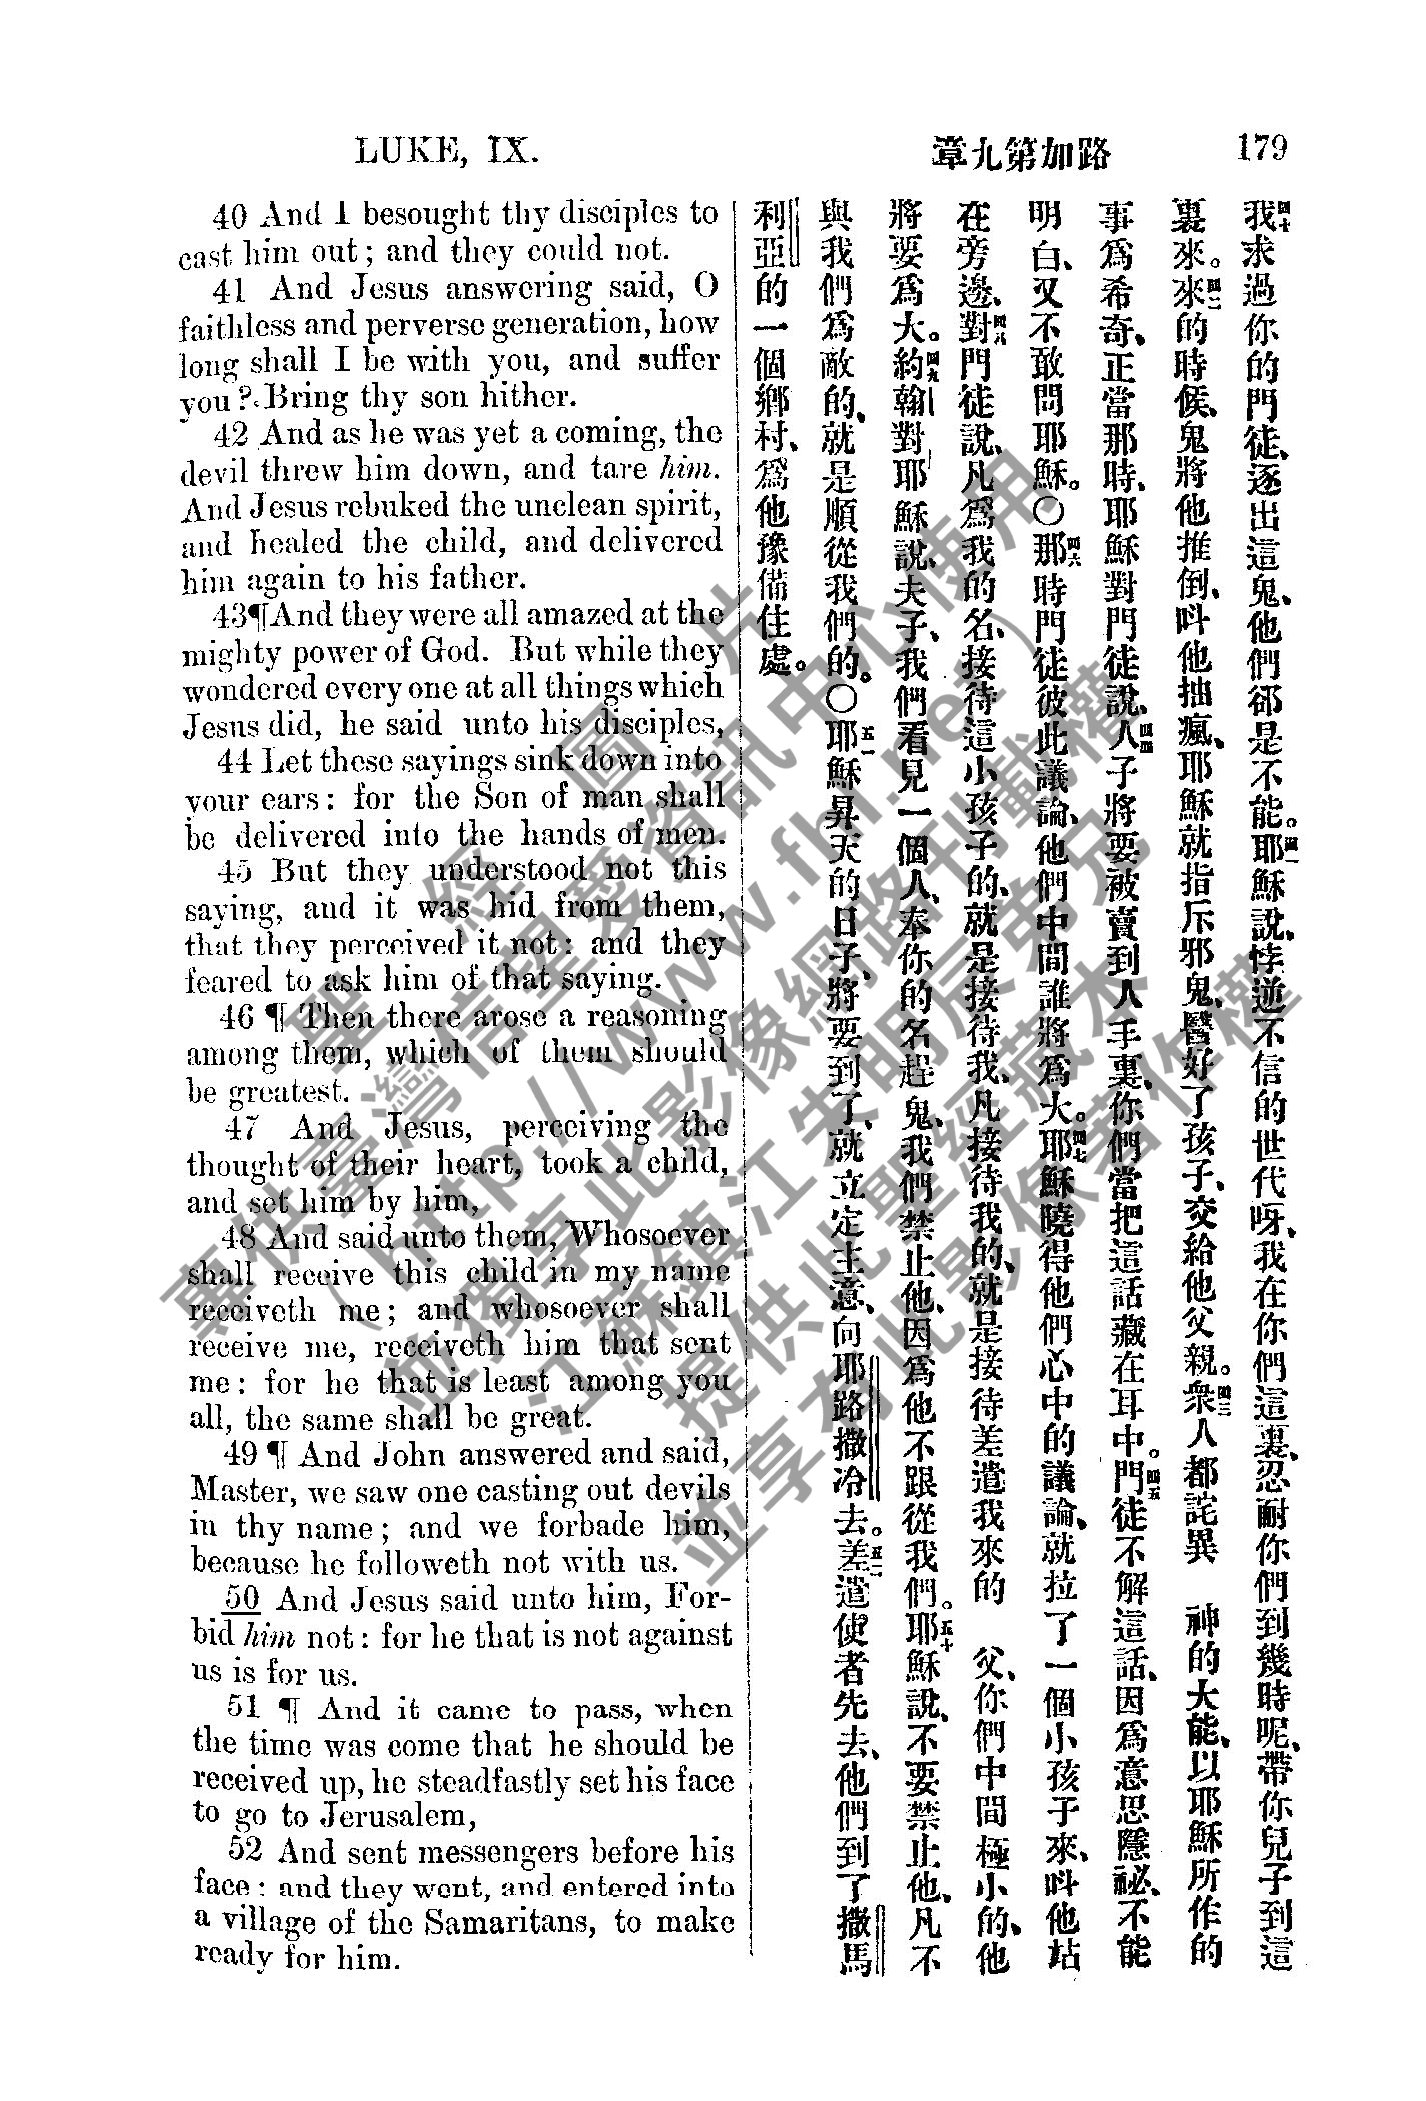 LUKE, IX.
章九第加路
179
40 And I besought thy disciples to
cast him out; and they could not.
41 And Jesus answering said, O
faithless and perverse generation, how
long shall I be with you, and suffer
you? Bring thy son hither.
42 And as he was yet a coming, the
devil threw him down, and tare him.
And Jesus rebuked the unclean spirit,
and healed the child, and delivered
him again to his father.
43 ¶ And they were all amazed at the
mighty power of God. But while they
wondered every one at all things which
Jesus did, he said unto his disciples,
44 Let these sayings sink down into
your ears: for the Son of man shall
be delivered into the hands of men.
45 But they understood not this
saying, and it was hid from them,
that they perceived it not: and they
feared to ask him of that saying.
46 ¶ Then there arose a reasoning
among them, which of them should
be greatest.
47 And Jesus, perceiving the
thought of their heart, took a child,
and set him by him,
48 And said unto them, Whosoever
shall receive this child in my name
receiveth me; and whosoever shall
receive me, receiveth him that sent
me: for he that is least among you
all, the same shall be great.
49 ¶ And John answered and said,
Master, we saw one casting out devils
in thy name; and we forbade him,
because he followeth not with us.
50 And Jesus said unto him, For-
bid him not: for he that is not against
us is for us.
51 ¶ And it came to pass, when
the time was come that he should be
received up, he steadfastly set his face
to go to Jerusalem,
52 And sent messengers before his
face: and they went, and entered into
a village of the Samaritans, to make
ready for him.
四十我求過你的門徒、逐出這鬼、他們郤是不能。四一耶穌說、悖逆不信的世代呀、我在你們這裏、忍耐你們到幾時呢、帶你兒子到這
裏來。四二來的時候、鬼將他推倒、呌他抽瘋、耶穌就指斥邪鬼、醫好了孩子、交給他父親。四三衆人都詫異 神的大能、以耶穌所作的
事爲希奇、正當那時、耶穌對門徒說、四四人子將要被賣到人手裏、你們當把這話藏在耳中。四五門徒不解這話、因爲意思隱祕、不能
明白、又不敢問耶穌。○四六那時門徒彼此議論、他們中間誰將爲大。四七耶穌曉得他們心中的議論、就拉了一個小孩子來、呌他站
在旁邊、四八對門徒說、凡爲我的名、接待這小孩子的、就是接待我、凡接待我的、就是接待差遣我來的 父、你們中間極小的、他
將要爲大。四九約翰對耶穌說、夫子、我們看見一個人、奉你的名趕鬼、我們禁止他、因爲他不跟從我們。五十耶穌說、不要禁止他、凡不
與我們爲敵的、就是順從我們的。○五一耶穌昇天的日子、將要到了、就立定主意、向耶路撒冷去。五二差遣使者先去、他們到了撒馬
利亞的一個鄉村、爲他豫備住處。
聖經圖片
專供臺灣信望愛資訊中心使用
(http://www.fhl.net)
並獨享此影像網路刊載權
江蘇鎮江朱明辰弟兄
提供此聖經藏本
並享有此影像著作權